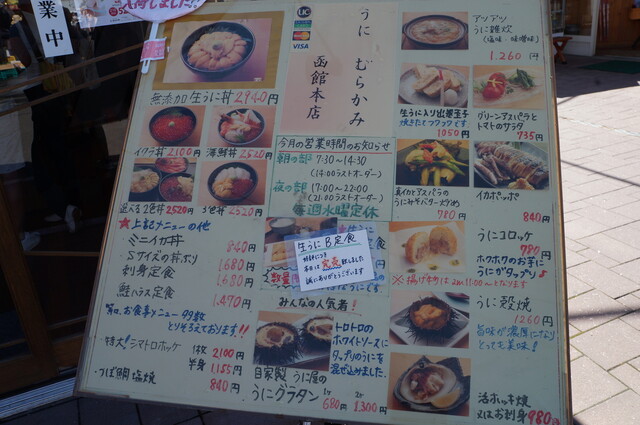 営業中
入荷しました!!
UC
VISA
うに むらかみ
函館本店
無添加生うに丼 2940円
イクラ丼 2100円
海鮮丼 2520円
選べる2色丼 2520円
3色丼 2520円
★上記メニューの他
ミニイカ丼 840円
Sサイズの丼 1,680
刺身定食 1,680円
鮭ハラス定食 1,470円
とりそろえております!!
特大!シマトロホッケ 1枚 2100円
半身 1,155円
つぼ鯛塩焼 840円
今月の営業時間のお知らせ
朝の部 7:30〜14:30
(14:00ラストオーダー)
夜の部 17:00〜22:00
(21:00ラストオーダー)
毎週水曜定休
生うにB定食
本日は完売致しました
誠にありがとうございます
数量
みんなの人気者!
トロトロの
ホワイトソースに
タップリのうにを
混ぜ込みました。
自家製 うに屋の
うにグラタン 1ケ 680円 2ケ 1300円
アツアツ
うに雑炊
(塩味・味噌味)
1.260円
生うに入り出し巻玉子
焼きたてアツアツです
1050円
グリーンアスパラと
トマトのサラダ
735円
真イカとアスパラの
うにみそバター炒め
780円
イカポッポ
840円
うにコロッケ
780円
ホクホクのお芋に
うにがタップリ♪
※揚げ物はAM11:00〜となります
うに殻焼
1260円
旨味が濃厚になり
とっても美味!
活ホッキ焼
又はお刺身 980円